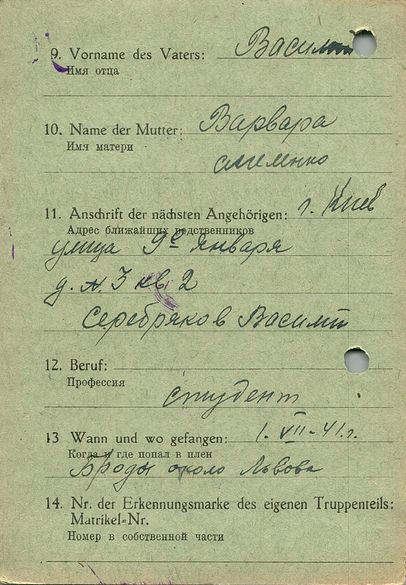 9. Vorname des Vaters: Василий
Имя отца
10. Name der Mutter: Варвара
Имя матери
11. Anschrift der nächsten Angehörigen: г. Киев
Адрес ближайших родственников
улица 9е Января
д. № 3 кв 2
Серебряков Василий
12. Beruf:
Профессия
студент
13 Wann und wo gefangen: 1. VII-41 г.
Когда и где попал в плен
Броды около Львова
14. Nr. der Erkennungsmarke des eigenen Truppenteils:
Matrikel-Nr.
Номер в собственной части